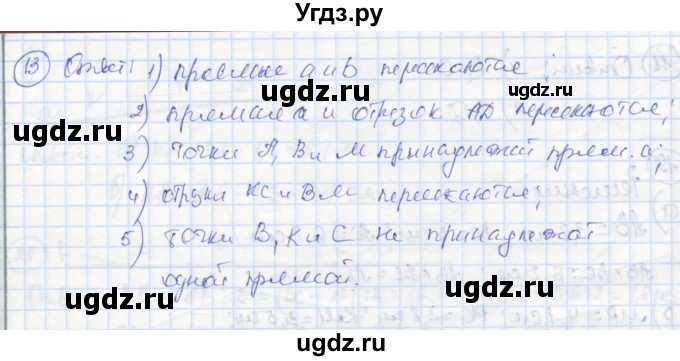 Угдз.ру
13 Ответ: 1) прямые a и b пересекаются;
2) прямая a и отрезок AD пересекаются;
3) точки A, B и M принадлежат прям. a;
4) отрезки KC и BM пересекаются;
5) точки B, K и C не принадлежат
одной прямой.
ugdz.ru ugdz.ru
ugdz.ru ugdz.ru
ugdz.ru ugdz.ru